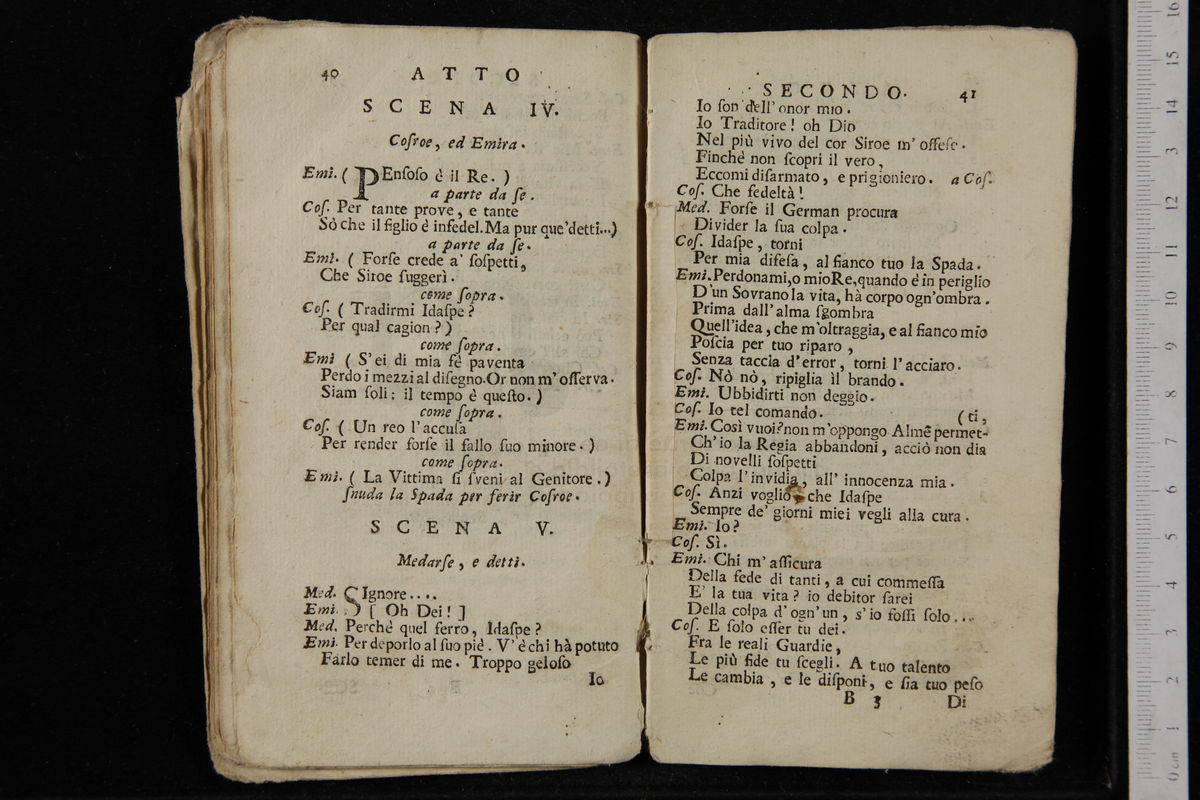 40 ATTO
SCENA IV.
Coſroe, ed Emira.
Emi. ( PEnſoſo è il Re. )
a parte da ſe.
Coſ. Per tante prove, e tante
Sò che il figlio è infedel. Ma pur que'detti...)
a parte da ſe.
Emi. ( Forſe crede a' ſoſpetti,
Che Siroe ſuggerì.
come ſopra.
Coſ. ( Tradirmi Idaſpe?
Per qual cagion? )
come ſopra.
Emi ( S'ei di mia fè paventa
Perdo i mezzi al diſegno. Or non m' oſſerva.
Siam ſoli; il tempo è queſto. )
come ſopra.
Coſ. ( Un reo l'accuſa
Per render forſe il fallo ſuo minore. )
come ſopra.
Emi. ( La Vittima ſi ſveni al Genitore. )
ſnuda la Spada per ferir Coſroe.
SCENA V.
Medarſe, e detti.
Med. SIgnore....
Emi. [ Oh Dei! ]
Med. Perchè quel ferro, Idaſpe?
Emi. Per deporlo al ſuo piè. V' è chi hà potuto
Farlo temer di me. Troppo geloſo
Io
SECONDO. 41
Io ſon dell' onor mio.
Io Traditore! oh Dio
Nel più vivo del cor Siroe m' offeſe.
Finchè non ſcopri il vero,
Eccomi diſarmato, e prigioniero. a Coſ.
Coſ. Che fedeltà!
Med. Forſe il German procura
Divider la ſua colpa.
Coſ. Idaſpe, torni
Per mia difeſa, al fianco tuo la Spada.
Emi. Perdonami, o mio Re, quando è in periglio
D'un Sovrano la vita, hà corpo ogn'ombra.
Prima dall' alma ſgombra
Quell'idea, che m'oltraggia, e al fianco mio
Poſcia per tuo riparo,
Senza taccia d'error, torni l' acciaro.
Coſ. Nò nò, ripiglia il brando.
Emi. Ubbidirti non deggio.
Coſ. Io tel comando. (ti,
Emi. Così vuoi? non m'oppongo Almê permet-
Ch' io la Regia abbandoni, acciò non dia
Di novelli ſoſpetti
Colpa l'invidia, all' innocenza mia.
Coſ. Anzi voglio che Idaſpe
Sempre de' giorni miei vegli alla cura.
Emi. Io?
Coſ. Sì.
Emi. Chi m' aſſicura
Della fede di tanti, a cui commeſſa
E' la tua vita? io debitor ſarei
Della colpa d' ogn' un, s' io foſſi ſolo...
Coſ. E ſolo eſſer tu dei.
Fra le reali Guardie,
Le più fide tu ſcegli. A tuo talento
Le cambia, e le diſponi, e ſia tuo peſo
B 3 Di